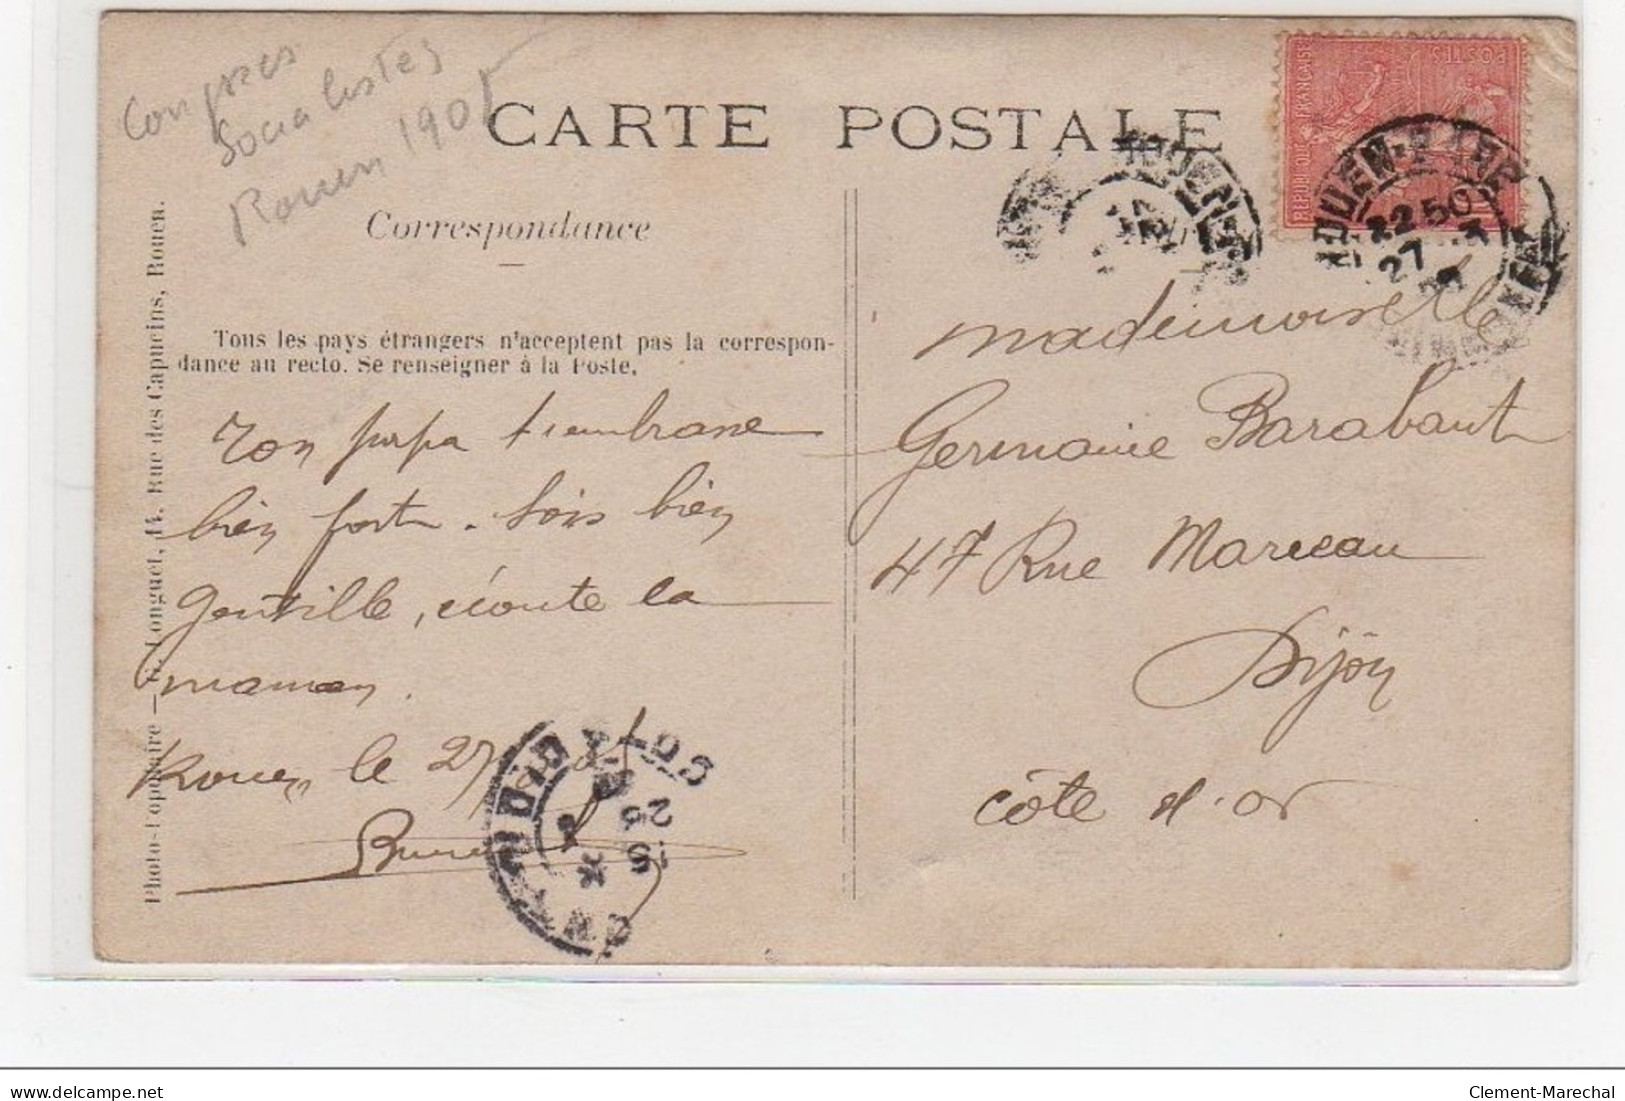 Congres
Socialistes
Rouen 1905
CARTE POSTALE
Correspondance
Tous les pays étrangers n'acceptent pas la correspon-
dance au recto. Se renseigner à la Poste.
Ton papa t'embrasse
bien fort. Sois bien
gentille, écoute la
maman.
Rouen le 27
Mademoiselle
Germaine Barabant
47 Rue Marceau
Dijon
côte d'or
Photo-Topographie Longuet, 14, Rue des Capucins, Rouen.
REPUBLIQUE FRANÇAISE
POSTES
ROUEN
22 50
27
DIJON
COTE-D'OR
delcampe.net
Clement-Marechal